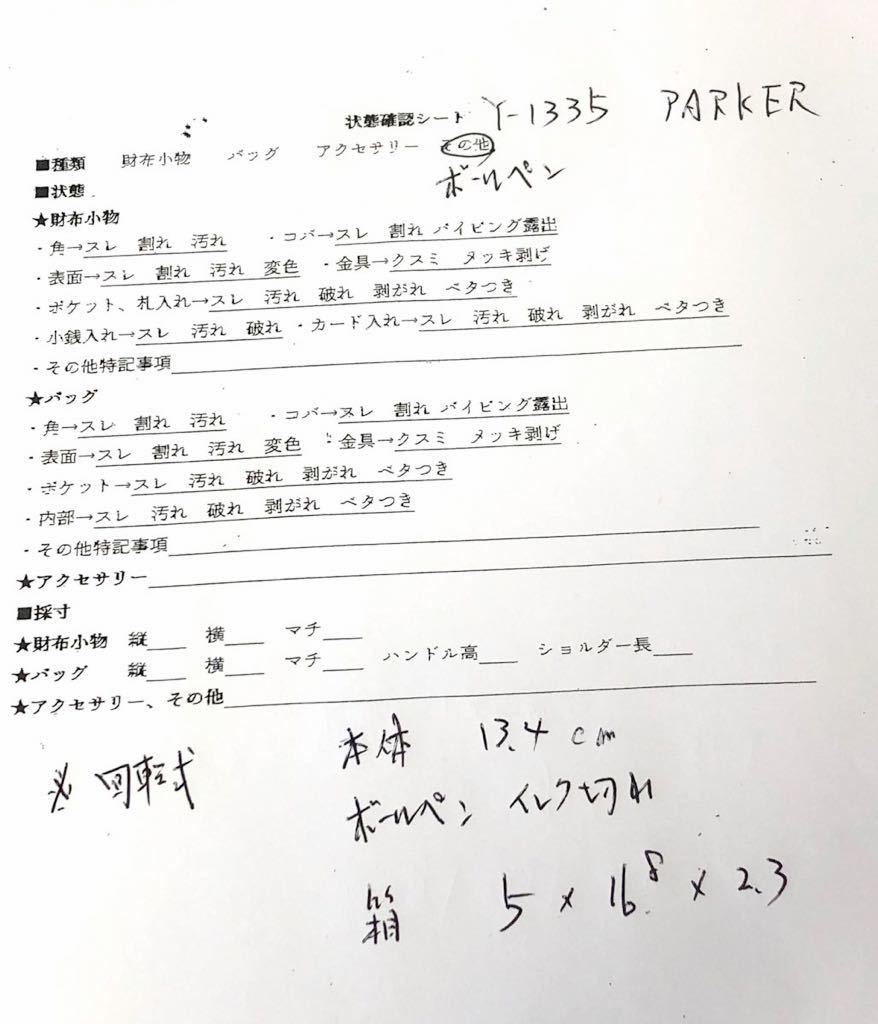 状態確認シート Y-1335 PARKER
■種類 財布小物 バッグ アクセサリー その他
ボールペン
■状態
★財布小物
・角→スレ 割れ 汚れ ・コバ→スレ 割れ パイピング露出
・表面→スレ 割れ 汚れ 変色 ・金具→クスミ メッキ剥げ
・ポケット、札入れ→スレ 汚れ 破れ 剥がれ ベタつき
・小銭入れ→スレ 汚れ 破れ ・カード入れ→スレ 汚れ 破れ 剥がれ ベタつき
・その他特記事項
★バッグ
・角→スレ 割れ 汚れ ・コバ→スレ 割れ パイピング露出
・表面→スレ 割れ 汚れ 変色 ・金具→クスミ メッキ剥げ
・ポケット→スレ 汚れ 破れ 剥がれ ベタつき
・内部→スレ 汚れ 破れ 剥がれ ベタつき
・その他特記事項
★アクセサリー
■採寸
★財布小物 縦 横 マチ
★バッグ 縦 横 マチ ハンドル高 ショルダー長
★アクセサリー、その他
本体 13.4 cm
※ 回転式
ボールペン インク切れ
箱 5 × 16.8 × 2.3